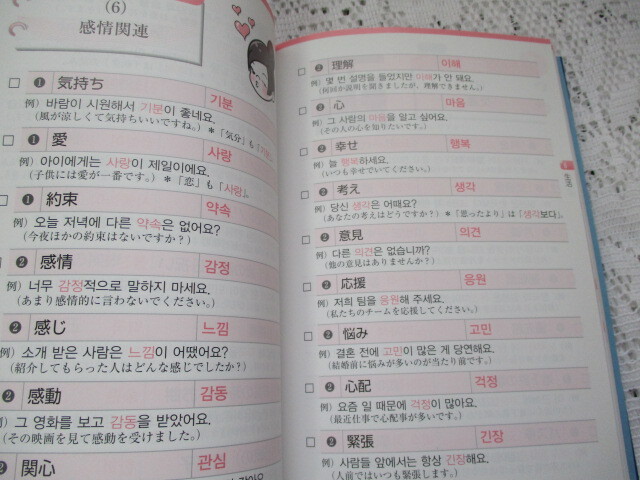 (6)
感情関連
❶ 気持ち 기분
例) 바람이 시원해서 기분이 좋네요.
(風が涼しくて気持ちいいですね。) *「気分」も「기분」
❶ 愛 사랑
例) 아이에게는 사랑이 제일이에요.
(子供には愛が一番です。) *「恋」も「사랑」。
❶ 約束 약속
例) 오늘 저녁에 다른 약속은 없어요?
(今夜ほかの約束はないですか?)
❷ 感情 감정
例) 너무 감정적으로 말하지 마세요.
(あまり感情的に言わないでください。)
❷ 感じ 느낌
例) 소개 받은 사람은 느낌이 어땠어요?
(紹介してもらった人はどんな感じでしたか?)
❷ 感動 감동
例) 그 영화를 보고 감동을 받았어요.
(その映画を見て感動を受けました。)
❷ 関心 관심
❷ 理解 이해
例) 몇 번 설명을 들었지만 이해가 안 돼요.
(何回か説明を聞きましたが、理解できません。)
❷ 心 마음
例) 그 사람의 마음을 알고 싶어요.
(その人の心を知りたいです。)
❷ 幸せ 행복
例) 늘 행복하세요.
(いつも幸せでいてください。)
❷ 考え 생각
例) 당신 생각은 어때요?
(あなたの考えはどうですか?) *「思ったより」は「생각보다」。
❷ 意見 의견
例) 다른 의견은 없습니까?
(他の意見はありませんか?)
❷ 応援 응원
例) 저희 팀을 응원해 주세요.
(私たちのチームを応援してください。)
❷ 悩み 고민
例) 결혼 전에 고민이 많은 게 당연해요.
(結婚前に悩みが多いのが当たり前です。)
❷ 心配 걱정
例) 요즘 일 때문에 걱정이 많아요.
(最近仕事で心配事が多いです。)
❷ 緊張 긴장
例) 사람들 앞에서는 항상 긴장해요.
(人前ではいつも緊張します。)